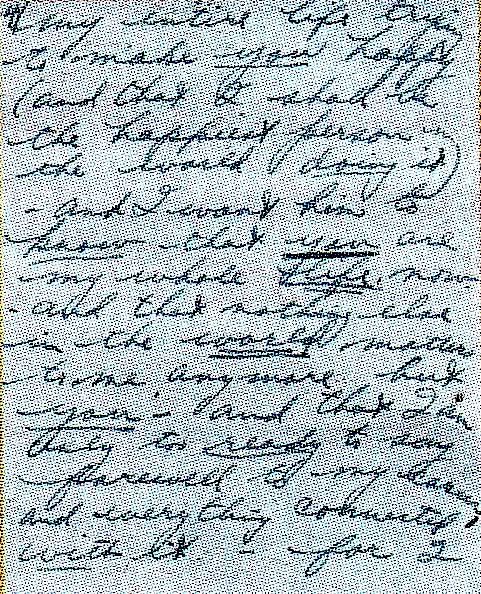 my entire life trying
to make you happy
(and that I shall be
the happiest person in
the world doing it)
- and I want him to
know that you are
my whole life now
- and that nothing else
in the world matters
to me anymore but
you - and that I'm
ready to say
farewell to my
and everything connected
with it - for I